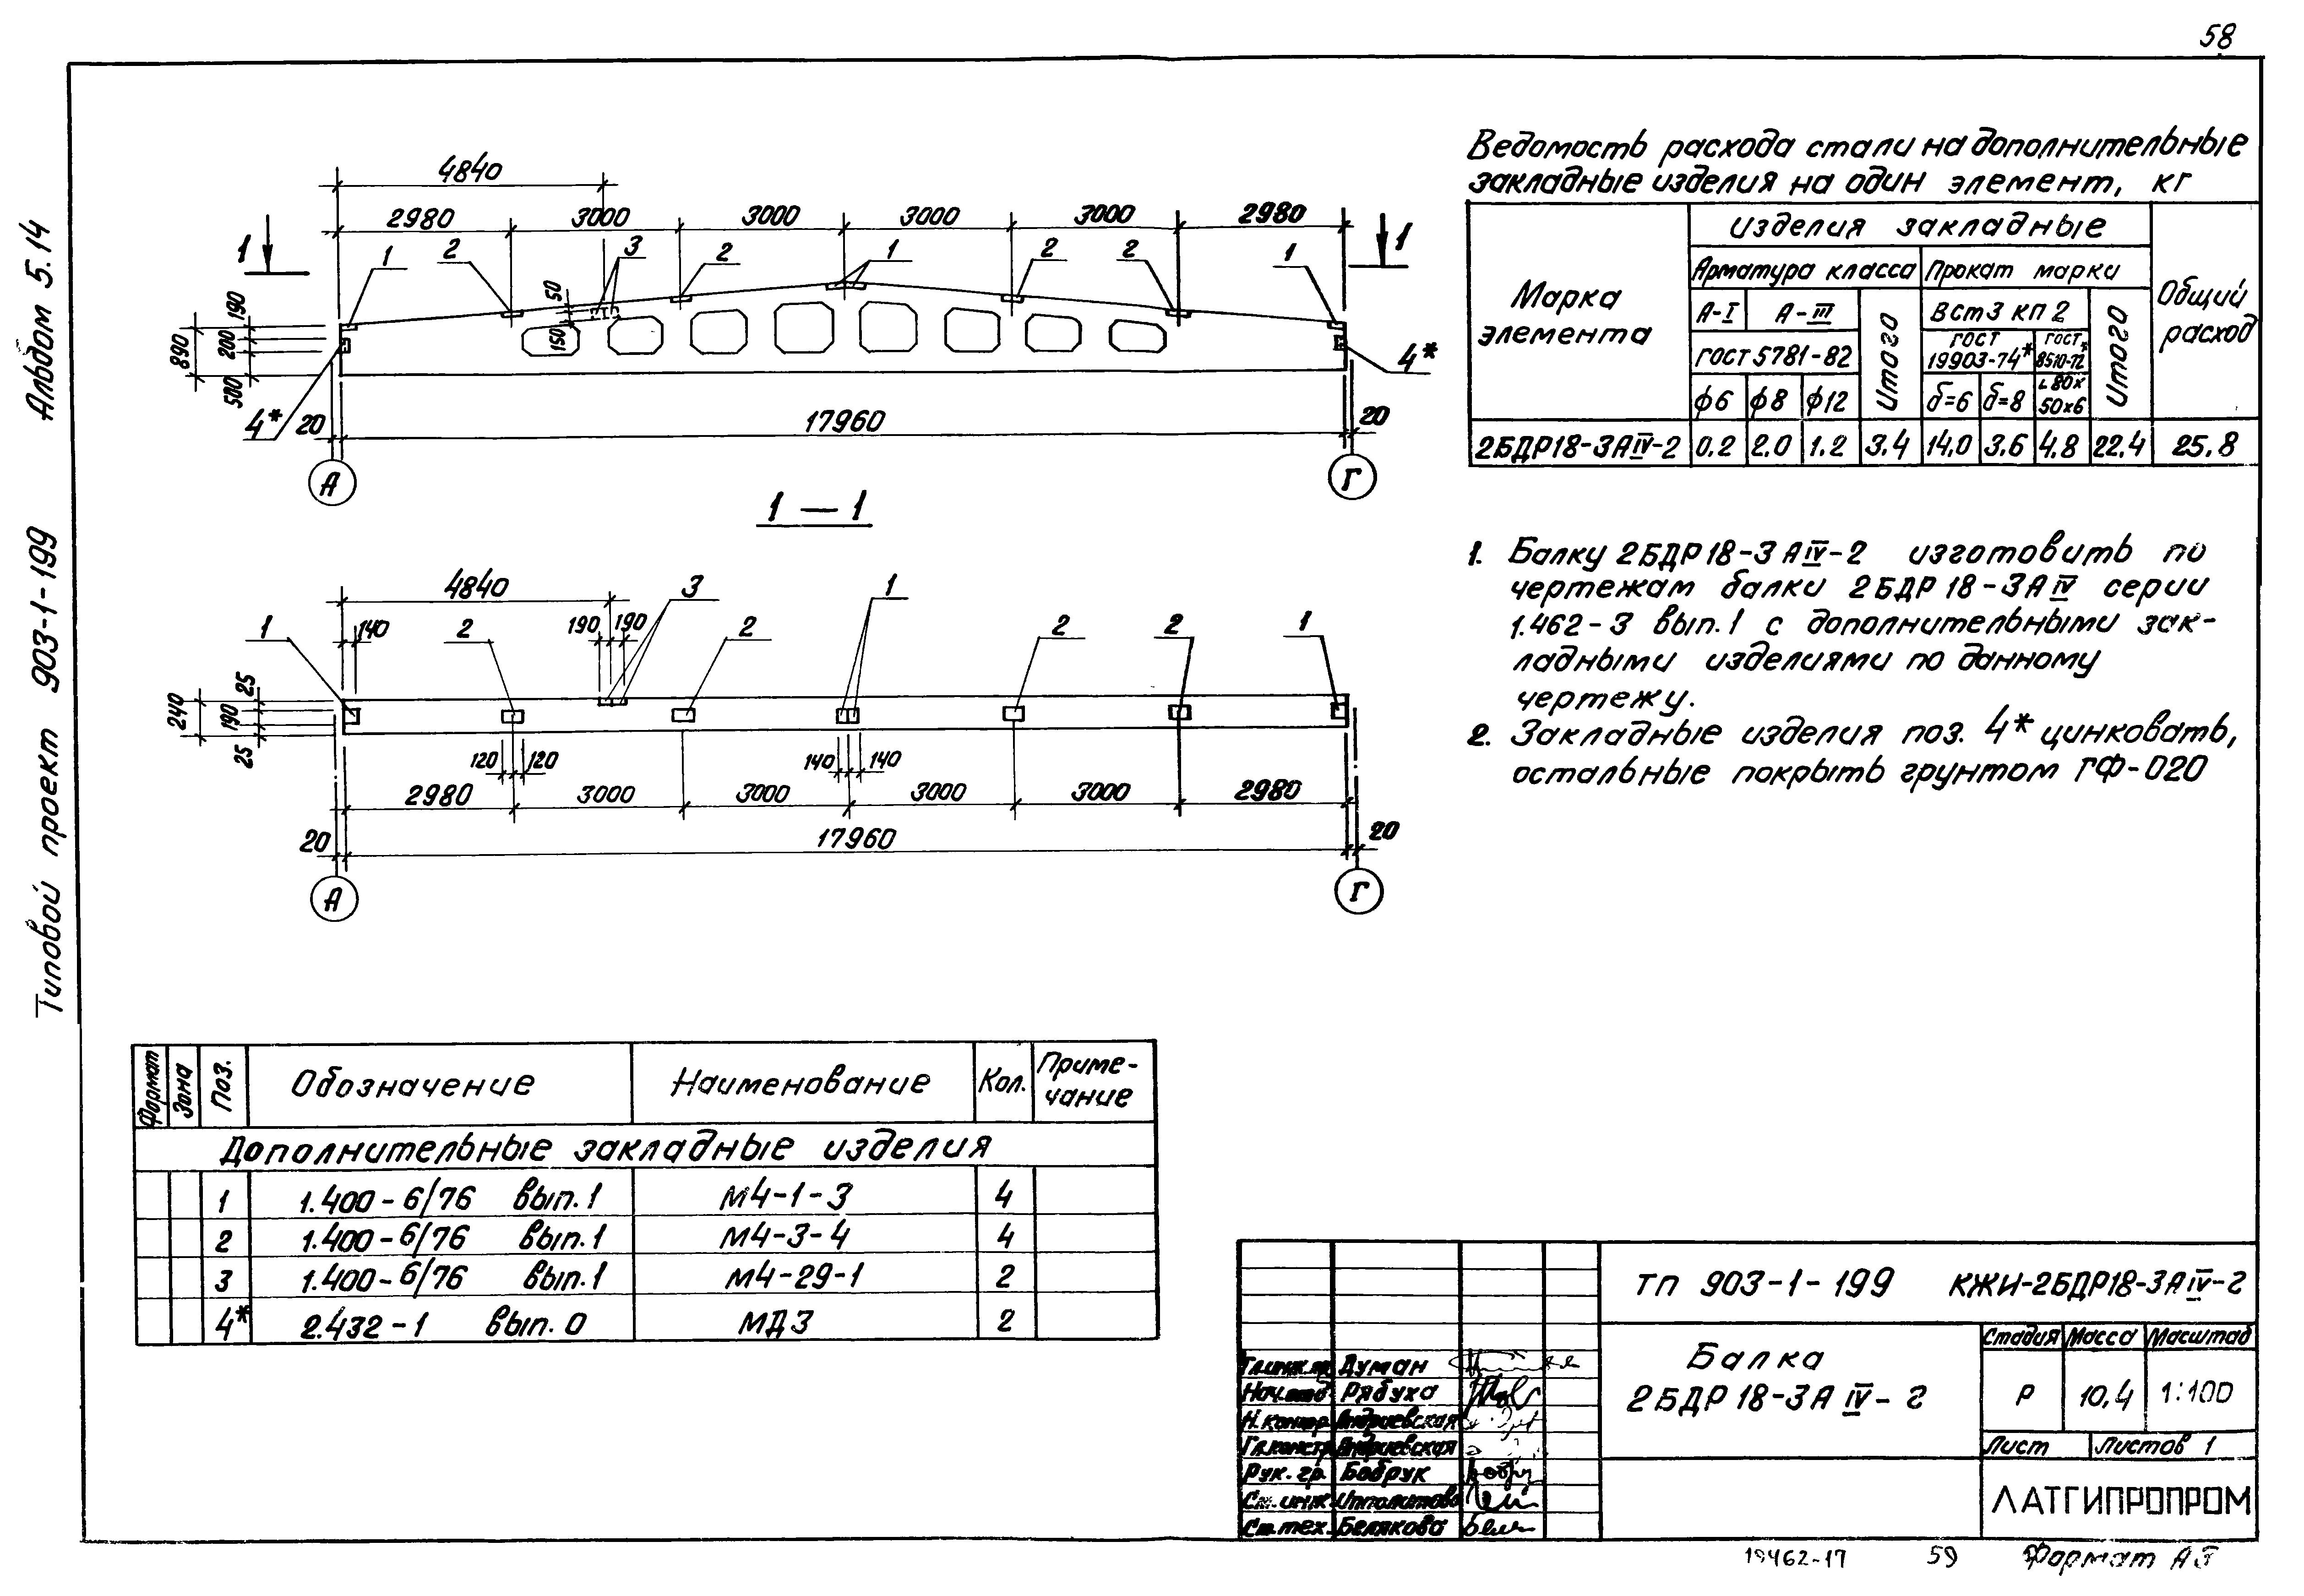 58
Альбом 5.14
Типовой проект 903-1-199
4840
2980 3000 3000 3000 3000 2980
1 1
1 2 3 2 1 2 2 1
50
150
190
200
500
890
4* 4*
20 17960 20
А Г
1 — 1
4840
3 1
190 190
140
1 2 2 2 2 1
25
190
25
240
120 120 140 140
2980 3000 3000 3000 3000 2980
20 17960 20
А Г
Ведомость расхода стали на дополнительные
закладные изделия на один элемент, кг
Марка элемента
Изделия закладные
Общий расход
Арматура класса
Прокат марки
А-I А-III
Итого
ВСт3 кп 2
Итого
ГОСТ 5781-82
ГОСТ 19903-74*
ГОСТ 8510-72*
ф6 ф8 ф12
δ=6 δ=8
L 80х50х6
2БДР18-3АIV-2 0.2 2.0 1.2 3.4 14.0 3.6 4.8 22.4 25.8
1. Балку 2БДР18-3АIV-2 изготовить по
чертежам балки 2БДР18-3АIV серии
1.462-3 вып.1 с дополнительными зак-
ладными изделиями по данному
чертежу.
2. Закладные изделия поз. 4* цинковать,
остальные покрыть грунтом ГФ-020
Формат Зона Поз. Обозначение Наименование Кол. Приме-
чание
Дополнительные закладные изделия
1 1.400-6/76 вып.1 М4-1-3 4
2 1.400-6/76 вып.1 М4-3-4 4
3 1.400-6/76 вып.1 М4-29-1 2
4* 2.432-1 вып.0 МД3 2
ТП 903-1-199 КЖИ-2БДР18-3АIV-2
Балка
2БДР18-3АIV-2
Стадия Масса Масштаб
Р 10,4 1:100
Лист Листов 1
ЛАТГИПРОПРОМ
Гл.инж.пр. Думан
Нач.отд. Рябуха
Н.контр. Андриевская
Гл.констр. Андриевская
Рук.гр. Бобрук
Ст.инж. Ипполитова
Ст.тех. Белякова
19462-17 59 Формат А3